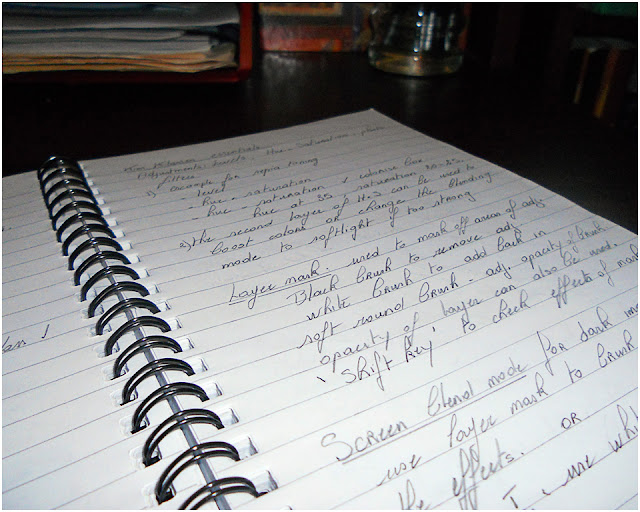 essentials
Adjustments: levels, Hue-Saturation, photo
filters
1) example for sepia toning
- levels
- hue - saturation
- hue - saturation & colorise box
- hue at 35 - saturation
2) the second layer of H+S can be used to
boost colors or change the blending
mode to softlight if too strong
Layer mask. used to mask off areas of adj.
Black brush to remove adj.
white brush to add back in
soft round brush - adj opacity of brush.
opacity of layer can also be used.
'Shift key' to check effects of mask
Screen blend mode for dark
use layer mask to brush
the effects. OR
I use